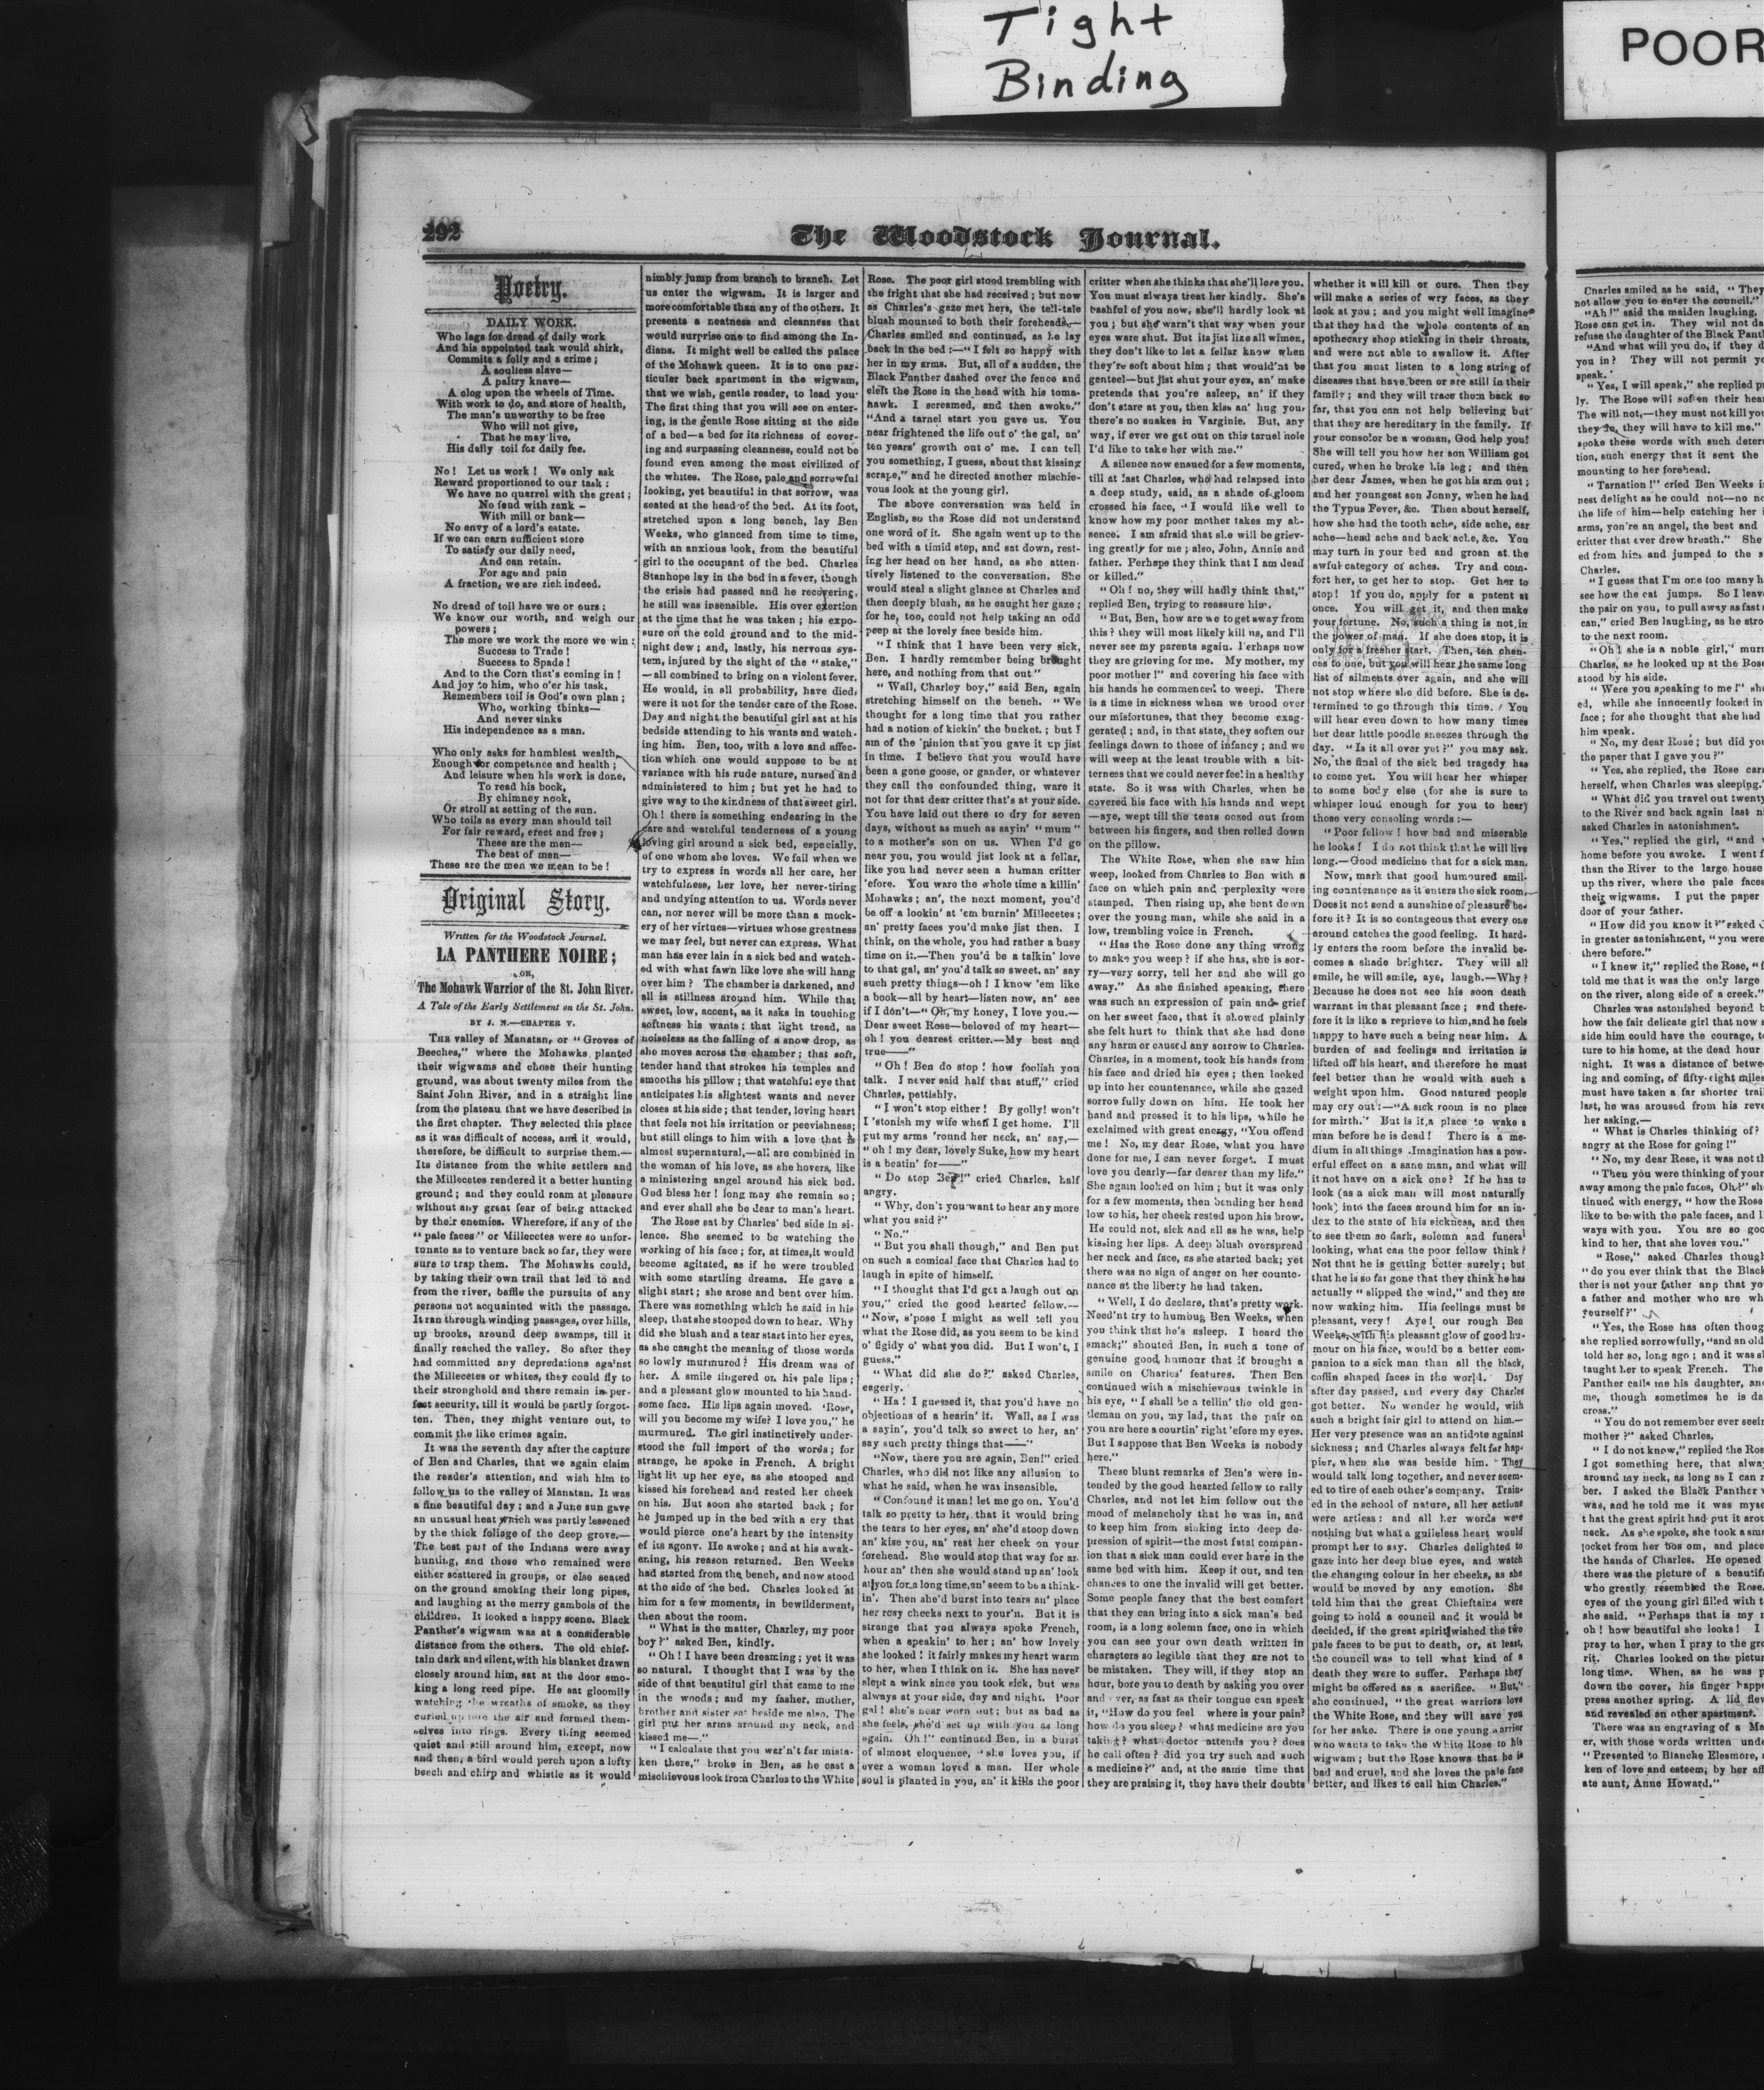 Tight
Binding
POOR
292
The Woodstock Journal.
Poetry.
DAILY WORK.
Who lags for dread of daily work
And his appointed task would shirk,
Commits a folly and a crime;
A soulless slave—
A paltry knave—
A clog upon the wheels of Time.
With work to do, and store of health,
The man's unworthy to be free
Who will not give,
That he may live,
His daily toil for daily fee.
No! Let us work! We only ask
Reward proportioned to our task:
We have no quarrel with the great;
No feud with rank—
With mill or bank—
No envy of a lord's estate.
If we can earn sufficient store
To satisfy our daily need,
And can retain.
For age and pain
A fraction, we are rich indeed.
No dread of toil have we or ours;
We know our worth, and weigh our
powers;
The more we work the more we win:
Success to Trade!
Success to Spade!
And to the Corn that's coming in!
And joy to him, who o'er his task,
Remembers toil is God's own plan;
Who, working thinks—
And never sinks
His independence as a man.
Who only asks for humblest wealth,
Enough for competence and health;
And leisure when his work is done,
To read his book,
By chimney nook,
Or stroll at setting of the sun.
Who toils as every man should toil
For fair reward, erect and free;
These are the men—
The best of men—
These are the men we mean to be!
Original Story.
Written for the Woodstock Journal.
LA PANTHERE NOIRE;
OR,
The Mohawk Warrior of the St. John River.
A Tale of the Early Settlement on the St. John.
BY J. M.—CHAPTER V.
THE valley of Manatan, or "Groves of
Beeches," where the Mohawks planted
their wigwams and chose their hunting
ground, was about twenty miles from the
Saint John River, and in a straight line
from the plateau that we have described in
the first chapter. They selected this place
as it was difficult of access, and it would,
therefore, be difficult to surprise them.—
Its distance from the white settlers and
the Millecetes rendered it a better hunting
ground; and they could roam at pleasure
without any great fear of being attacked
by their enemies. Wherefore, if any of the
"pale faces" or Millecetes were so unfor-
tunate as to venture back so far, they were
sure to trap them. The Mohawks could,
by taking their own trail that led to and
from the river, baffle the pursuits of any
persons not acquainted with the passage.
It ran through winding passages, over hills,
up brooks, around deep swamps, till it
finally reached the valley. So after they
had committed any depredations against
the Millecetes or whites, they could fly to
their stronghold and there remain in per-
fect security, till it would be partly forgot-
ten. Then, they might venture out, to
commit the like crimes again.
It was the seventh day after the capture
of Ben and Charles, that we again claim
the reader's attention, and wish him to
follow us to the valley of Manatan. It was
a fine beautiful day; and a June sun gave
an unusual heat which was partly lessened
by the thick foliage of the deep grove.—
The best part of the Indians were away
hunting, and those who remained were
either scattered in groups, or else seated
on the ground smoking their long pipes,
and laughing at the merry gambols of the
children. It looked a happy scene. Black
Panther's wigwam was at a considerable
distance from the others. The old chief-
tain dark and silent, with his blanket drawn
closely around him, sat at the door smo-
king a long reed pipe. He sat gloomily
watching the wreaths of smoke, as they
curled up into the air and formed them-
selves into rings. Every thing seemed
quiet and still around him, except, now
and then, a bird would perch upon a lofty
beech and chirp and whistle as it would
nimbly jump from branch to branch. Let
us enter the wigwam. It is larger and
more comfortable than any of the others. It
presents a neatness and cleanness that
would surprise one to find among the In-
dians. It might well be called the palace
of the Mohawk queen. It is to one par-
ticular back apartment in the wigwam,
that we wish, gentle reader, to lead you.
The first thing that you will see on enter-
ing, is the gentle Rose sitting at the side
of a bed—a bed for its richness of cover-
ing and surpassing cleanness, could not be
found even among the most civilized of
the whites. The Rose, pale and sorrowful
looking, yet beautiful in that sorrow, was
seated at the head of the bed. At its foot,
stretched upon a long bench, lay Ben
Weeks, who glanced from time to time,
with an anxious look, from the beautiful
girl to the occupant of the bed. Charles
Stanhope lay in the bed in a fever, though
the crisis had passed and he recovering,
he still was insensible. His over exertion
at the time that he was taken; his expo-
sure on the cold ground and to the mid-
night dew; and, lastly, his nervous sys-
tem, injured by the sight of the "stake,"
—all combined to bring on a violent fever.
He would, in all probability, have died,
were it not for the tender care of the Rose.
Day and night the beautiful girl sat at his
bedside attending to his wants and watch-
ing him. Ben, too, with a love and affec-
tion which one would suppose to be at
variance with his rude nature, nursed and
administered to him; but yet he had to
give way to the kindness of that sweet girl.
Oh! there is something endearing in the
care and watchful tenderness of a young
loving girl around a sick bed, especially.
of one whom she loves. We fail when we
try to express in words all her care, her
watchfulness, her love, her never-tiring
and undying attention to us. Words never
can, nor never will be more than a mock-
ery of her virtues—virtues whose greatness
we may feel, but never can express. What
man has ever lain in a sick bed and watch-
ed with what fawn like love she will hang
over him? The chamber is darkened, and
all is stillness around him. While that
sweet, low, accent, as it asks in touching
softness his wants: that light tread, as
noiseless as the falling of a snow drop, as
she moves across the chamber; that soft,
tender hand that strokes his temples and
smooths his pillow; that watchful eye that
anticipates his slightest wants and never
closes at his side; that tender, loving heart
that feels not his irritation or peevishness;
but still clings to him with a love that is
almost supernatural,—all are combined in
the woman of his love, as she hovers, like
a ministering angel around his sick bed.
God bless her! long may she remain so;
and ever shall she be dear to man's heart.
The Rose sat by Charles' bed side in si-
lence. She seemed to be watching the
working of his face; for, at times, it would
become agitated, as if he were troubled
with some startling dreams. He gave a
slight start; she arose and bent over him.
There was something which he said in his
sleep, that she stooped down to hear. Why
did she blush and a tear start into her eyes,
as she caught the meaning of those words
so lowly murmured? His dream was of
her. A smile lingered on his pale lips;
and a pleasant glow mounted to his hand-
some face. His lips again moved. 'Rose,
will you become my wife? I love you," he
murmured. The girl instinctively under-
stood the full import of the words; for
strange, he spoke in French. A bright
light lit up her eye, as she stooped and
kissed his forehead and rested her cheek
on his. But soon she started back; for
he jumped up in the bed with a cry that
would pierce one's heart by the intensity
of its agony. He awoke; and at his awak-
ening, his reason returned. Ben Weeks
had started from the bench, and now stood
at the side of the bed. Charles looked at
him for a few moments, in bewilderment,
then about the room.
"What is the matter, Charley, my poor
boy?" asked Ben, kindly.
"Oh! I have been dreaming; yet it was
so natural. I thought that I was by the
side of that beautiful girl that came to me
in the woods; and my fasher, mother,
brother and sister sat beside me also. The
girl put her arms around my neck, and
kissed me—."
"I calculate that you war'n't far mista-
ken there," broke in Ben, as he cast a
mischievous look from Charles to the White
Rose. The poor girl stood trembling with
the fright that she had received; but now
as Charles's gaze met hers, the tell-tale
blush mounted to both their foreheads.—
Charles smiled and continued, as he lay
back in the bed:—"I felt so happy with
her in my arms. But, all of a sudden, the
Black Panther dashed over the fence and
cleft the Rose in the head with his toma-
hawk. I screamed, and then awoke."
"And a tarnel start you gave us. You
near frightened the life out o' the gal, an'
ten years' growth out o' me. I can tell
you something, I guess, about that kissing
scrape," and he directed another mischie-
vous look at the young girl.
The above conversation was held in
English, so the Rose did not understand
one word of it. She again went up to the
bed with a timid step, and sat down, rest-
ing her head on her hand, as she atten-
tively listened to the conversation. She
would steal a slight glance at Charles and
then deeply blush, as he caught her gaze;
for he, too, could not help taking an odd
peep at the lovely face beside him.
"I think that I have been very sick,
Ben. I hardly remember being brought
here, and nothing from that out."
"Wall, Charley boy," said Ben, again
stretching himself on the bench. "We
thought for a long time that you rather
had a notion of kickin' the bucket.; but I
am of the 'pinion that you gave it up jist
in time. I believe that you would have
been a gone goose, or gander, or whatever
they call the confounded thing, ware it
not for that dear critter that's at your side.
You have laid out there to dry for seven
days, without as much as sayin' "mum"
to a mother's son on us. When I'd go
near you, you would jist look at a fellar,
like you had never seen a human critter
'efore. You ware the whole time a killin'
Mohawks; an', the next moment, you'd
be off a lookin' at 'em burnin' Millecetes;
an' pretty faces you'd make jist then. I
think, on the whole, you had rather a busy
time on it.—Then you'd be a talkin' love
to that gal, an' you'd talk so sweet. an' say
such pretty things—oh! I know 'em like
a book—all by heart—listen now, an' see
if I don't—"Oh, my honey, I love you.—
Dear sweet Rose—beloved of my heart—
oh! you dearest critter.—My best and
true——"
"Oh! Ben do stop! how foolish you
talk. I never said half that stuff," cried
Charles, pettishly.
"I won't stop either! By golly! won't
I 'stonish my wife when I get home. I'll
put my arms 'round her neck, an' say,—
"oh! my dear, lovely Suke, how my heart
is a beatin' for——"
"Do stop Ben!" cried Charles, half
angry.
"Why, don't you want to hear any more
what you said?"
"No."
"But you shall though," and Ben put
on such a comical face that Charles had to
laugh in spite of himself.
"I thought that I'd get a laugh out on
you," cried the good hearted fellow.—
"Now, s'pose I might as well tell you
what the Rose did, as you seem to be kind
o' figidy o' what you did. But I won't, I
guess."
"What did she do?" asked Charles,
eagerly.
"Ha! I guessed it, that you'd have no
objections of a hearin' it. Wall, as I was
a sayin', you'd talk so sweet to her, an'
say such pretty things that——"
"Now, there you are again, Ben!" cried
Charles, who did not like any allusion to
what he said, when he was insensible.
"Confound it man! let me go on. You'd
talk so pretty to her, that it would bring
the tears to her eyes, an' she'd stoop down
an' kise you, an' rest her cheek on your
forehead. She would stop that way for an
hour an' then she would stand up an' look
at you for a long time, an' seem to be a think-
in'. Then she'd burst into tears an' place
her rosy cheeks next to your'n. But it is
strange that you always spoke French,
when a speakin' to her; an' how lovely
she looked! it fairly makes my heart warm
to her, when I think on it. She has never
slept a wink since you took sick, but was
always at your side, day and night. Poor
gal! she's near worn out; but as bad as
she feels, she'd set up with you as long
again. Oh!" continued Ben, in a burst
of almost eloquence, "she loves you, if
ever a woman loved a man. Her whole
soul is planted in you, an' it kills the poor
critter when she thinks that she'll lose you.
You must always treat her kindly. She's
bashful of you now, she'll hardly look at
you; but she warn't that way when your
eyes ware shut. But its jist like all wimen,
they don't like to let a fellar know when
they're soft about him; that would'nt be
genteel—but jist shut your eyes, an' make
pretends that you're asleep, an' if they
don't stare at you, then kiss an' hug you,
there's no snakes in Varginie. But, any
way, if ever we get out on this tarnel hole
I'd like to take her with me."
A silence now ensued for a few moments,
till at last Charles, who had relapsed into
a deep study, said, as a shade of gloom
crossed his face, "I would like well to
know how my poor mother takes my ab-
sence. I am afraid that she will be griev-
ing greatly for me; also, John, Annie and
father. Perhaps they think that I am dead
or killed."
"Oh! no, they will hadly think that,"
replied Ben, trying to reassure him.
"But, Ben, how are we to get away from
this? they will most likely kill us, and I'll
never see my parents again. Perhaps now
they are grieving for me. My mother, my
poor mother!" and covering his face with
his hands he commenced to weep. There
is a time in sickness when we brood over
our misfortunes, that they become exag-
gerated; and, in that state, they soften our
feelings down to those of infancy; and we
will weep at the least trouble with a bit-
terness that we could never feel in a healthy
state. So it was with Charles, when he
covered his face with his hands and wept
—aye, wept till the tears oozed out from
between his fingers, and then rolled down
on the pillow.
The White Rose, when she saw him
weep, looked from Charles to Ben with a
face on which pain and perplexity were
stamped. Then rising up, she bent down
over the young man, while she said in a
low, trembling voice in French.
"Has the Rose done any thing wrong
to make you weep? if she has, she is sor-
ry—very sorry, tell her and she will go
away." As she finished speaking, there
was such an expression of pain and grief
on her sweet face, that it showed plainly
she felt hurt to think that she had done
any harm or caused any sorrow to Charles.
Charles, in a moment, took his hands from
his face and dried his eyes; then looked
up into her countenance, while she gazed
sorrowfully down on him. He took her
hand and pressed it to his lips, while he
exclaimed with great energy, "You offend
me! No, my dear Rose, what you have
done for me, I can never forget. I must
love you dearly—far dearer than my life."
She again looked on him; but it was only
for a few moments, then bending her head
low to his, her cheek rested upon his brow.
He could not, sick and all as he was, help
kissing her lips. A deep blush overspread
her neck and face, as she started back; yet
there was no sign of anger on her counte-
nance at the liberty he had taken.
"Well, I do declare, that's pretty work.
Need'nt try to humbug Ben Weeks, when
you think that he's asleep. I heard the
smack;" shouted Ben, in such a tone of
genuine good, humour that if brought a
smile on Charles' features. Then Ben
continued with a mischievous twinkle in
his eye, "I shall be a tellin' the old gen-
tleman on you, my lad, that the pair on
you are here a courtin' right 'efore my eyes.
But I suppose that Ben Weeks is nobody
here."
These blunt remarks of Ben's were in-
tended by the good hearted fellow to rally
Charles, and not let him follow out the
mood of melancholy that he was in, and
to keep him from sinking into deep de-
pression of spirit—the most fatal compan-
ion that a sick man could ever have in the
same bed with him. Keep it out, and ten
chances to one the invalid will get better.
Some people fancy that the best comfort
that they can bring into a sick man's bed
room, is a long solemn face, one in which
you can see your own death written in
characters so legible that they are not to
be mistaken. They will, if they stop an
hour, bore you to death by asking you over
and over, as fast as their tongue can speak
it, "How do you feel where is your pain?
how do you sleep? what medicine are you
taking? what doctor attends you? does
he call often? did you try such and such
a medicine?" and, at the same time that
they are praising it, they have their doubts
whether it will kill or cure. Then they
will make a series of wry faces, as they
look at you; and you might well Imagine
that they had the whole contents of an
apothecary shop sticking in their throats,
and were not able to swallow it. After
that you must listen to a long string of
diseases that have been or are still in their
family; and they will trace them back so
far, that you can not help believing but
that they are hereditary in the family. If
your consolor be a woman, God help you!
She will tell you how her son William got
cured, when he broke his leg; and then
her dear James, when he got his arm out;
and her youngest son Jonny, when he had
the Typus Fever, &c. Then about herself,
how she had the tooth ache, side ache, ear
ache—head ache and back ache, &c. You
may turn in your bed and groan at the
awful category of aches. Try and com-
fort her, to get her to stop. Get her to
stop! If you do, apply for a patent at
once. You will get it, and then make
your fortune. No, such a thing is not in
the power of man. If she does stop, it is
only for a fresher start. Then, ten chan-
ces to one, but you will hear the same long
list of ailments over again, and she will
not stop where she did before. She is de-
termined to go through this time. You
will hear even down to how many times
her dear little poodle sneezes through the
day. "Is it all over yet?" you may ask.
No, the final of the sick bed tragedy has
to come yet. You will hear her whisper
to some body else (for she is sure to
whisper loud enough for you to hear)
those very consoling words:—
"Poor fellow! how bad and miserable
he looks! I do not think that he will live
long.—Good medicine that for a sick man.
Now, mark that good humoured smil-
ing countenance as it enters the sick room.
Does it not send a sunshine of pleasure be-
fore it? It is so contageous that every one
around catches the good feeling. It hard-
ly enters the room before the invalid be-
comes a shade brighter. They will all
smile, he will smile, aye, laugh.—Why?
Because he does not see his soon death
warrant in that pleasant face; and there-
fore it is like a reprieve to him, and he feels
happy to have such a being near him. A
burden of sad feelings and irritation is
lifted off his heart, and therefore he must
feel better than he would with such a
weight upon him. Good natured people
may cry out:—"A sick room is no place
for mirth." But is it a place to wake a
man before he is dead! There is a me-
dium in all things .Imagination has a pow-
erful effect on a sane man, and what will
it not have on a sick one? If he has to
look (as a sick man will most naturally
look) into the faces around him for an in-
dex to the state of his sickness, and then
to see them so dark, solemn and funeral
looking, what can the poor fellow think?
Not that he is getting better surely; but
that he is so far gone that they think he has
actually "slipped the wind," and they are
now waking him. His feelings must be
pleasant, very! Aye! our rough Ben
Weeks, with his pleasant glow of good hu-
mour on his face, would be a better com-
panion to a sick man than all the black,
coffin shaped faces in the world. Day
after day passed, and every day Charles
got better. No wonder he would, with
such a bright fair girl to attend on him.—
Her very presence was an antidote against
sickness; and Charles always felt far hap-
pier, when she was beside him. They
would talk long together, and never seem-
ed to tire of each other's company. Train-
ed in the school of nature, all her actions
were artless: and all her words were
nothing but what a guileless heart would
prompt her to say. Charles delighted to
gaze into her deep blue eyes, and watch
the changing colour in her cheeks, as she
would be moved by any emotion. She
told him that the great Chieftains were
going to hold a council and it would be
decided, if the great spirit wished the two
pale faces to be put to death, or, at least,
the council was to tell what kind of a
death they were to suffer. Perhaps they
might be offered as a sacrifice. "But,"
she continued, "the great warriors love
the White Rose, and they will save you
for her sake. There is one young warrior
who wants to take the White Rose to his
wigwam; but the Rose knows that he is
bad and cruel, and she loves the pale face
better, and likes to call him Charles."
Charles smiled as he said, "They
not allow you to enter the council."
"Ah!" said the maiden laughing,
Rose can get in. They will not da
refuse the daughter of the Black Pant
"And what will you do, if they d
you in? They will not permit yo
speak."
"Yes, I will speak," she replied p
ly. The Rose will soften their hea
The will not,—they must not kill you
they do, they will have to kill me."
spoke these words with such deter
tion, such energy that it sent the
mounting to her forehead.
"Tarnation!" cried Ben Weeks i
nest delight as he could not—no no
the life of him—help catching her i
arms, yon're an angel, the best and
critter that ever drew breath." She
ed from him and jumped to the s
Charles.
"I guess that I'm one too many h
see how the cat jumps. So I leav
the pair on you, to pull away as fast
can," cried Ben laughing, as he stro
to the next room.
"Oh! she is a noble girl," murm
Charles, as he looked up at the Rose
stood by his side.
"Were you speaking to me?" she
ed, while she innocently looked in
face; for she thought that she had
him speak.
"No, my dear Rose; but did you
the paper that I gave you?"
"Yes, she replied, the Rose carr
herself, when Charles was sleeping."
"What did you travel out twenty
to the River and back again last n
asked Charles in astonishment.
"Yes," replied the girl, "and
home before you awoke. I went f
than the River to the large house
up the river, where the pale faces
their wigwams. I put the paper
door of your father.
"How did you know it?" asked C
in greater astonishment, "you were
there before."
"I knew it," replied the Rose, "
told me that it was the only large
on the river, along side of a creek."
Charles was astonished beyond b
how the fair delicate girl that now s
side him could have the courage, to
ture to his home, at the dead hour
night. It was a distance of betwe
ing and coming, of fifty-eight miles
must have taken a far shorter trail
last, he was aroused from his reve
her asking,—
"What is Charles thinking of?
angry at the Rose for going!"
"No, my dear Rose, it was not th
"Then you were thinking of your
away among the pale faces, Oh!" sh
tinued with energy, "how the Rose
like to be with the pale faces, and l
ways with you. You are so goo
kind to her, that she loves you."
"Rose," asked Charles though
"do you ever think that the Black
ther is not your father anp that yo
a father and mother who are wh
yourself?"
"Yes, the Rose has often thoug
she replied sorrowfully, "and an old
told her so, long ago; and it was sh
taught her to speak French. The
Panther calls me his daughter, and
me, though sometimes he is da
cross."
"You do not remember ever seein
mother?" asked Charles,
"I do not know," replied the Ros
I got something here, that alway
around my neck, as long as I can r
ber. I asked the Black Panther w
was, and he told me it was myse
t hat the great spirit had put it arou
neck. As she spoke, she took a sma
locket from her bos om, and place
the hands of Charles. He opened
there was the picture of a beautifu
who greatly resembled the Rose.
eyes of the young girl filled with t
she said. "Perhaps that is my m
oh! how beautiful she looks! I
pray to her, when I pray to the gre
rit. Charles looked on the pictur
long time. When, as he was p
down the cover, his finger happe
press another spring. A lid flew
and revealed an other apartment.
There was an engraving of a Ma
er, with those words written unde
"Presented to Blanche Elesmore, a
ken of love and esteem, by her aff
ate aunt, Anne Howard."